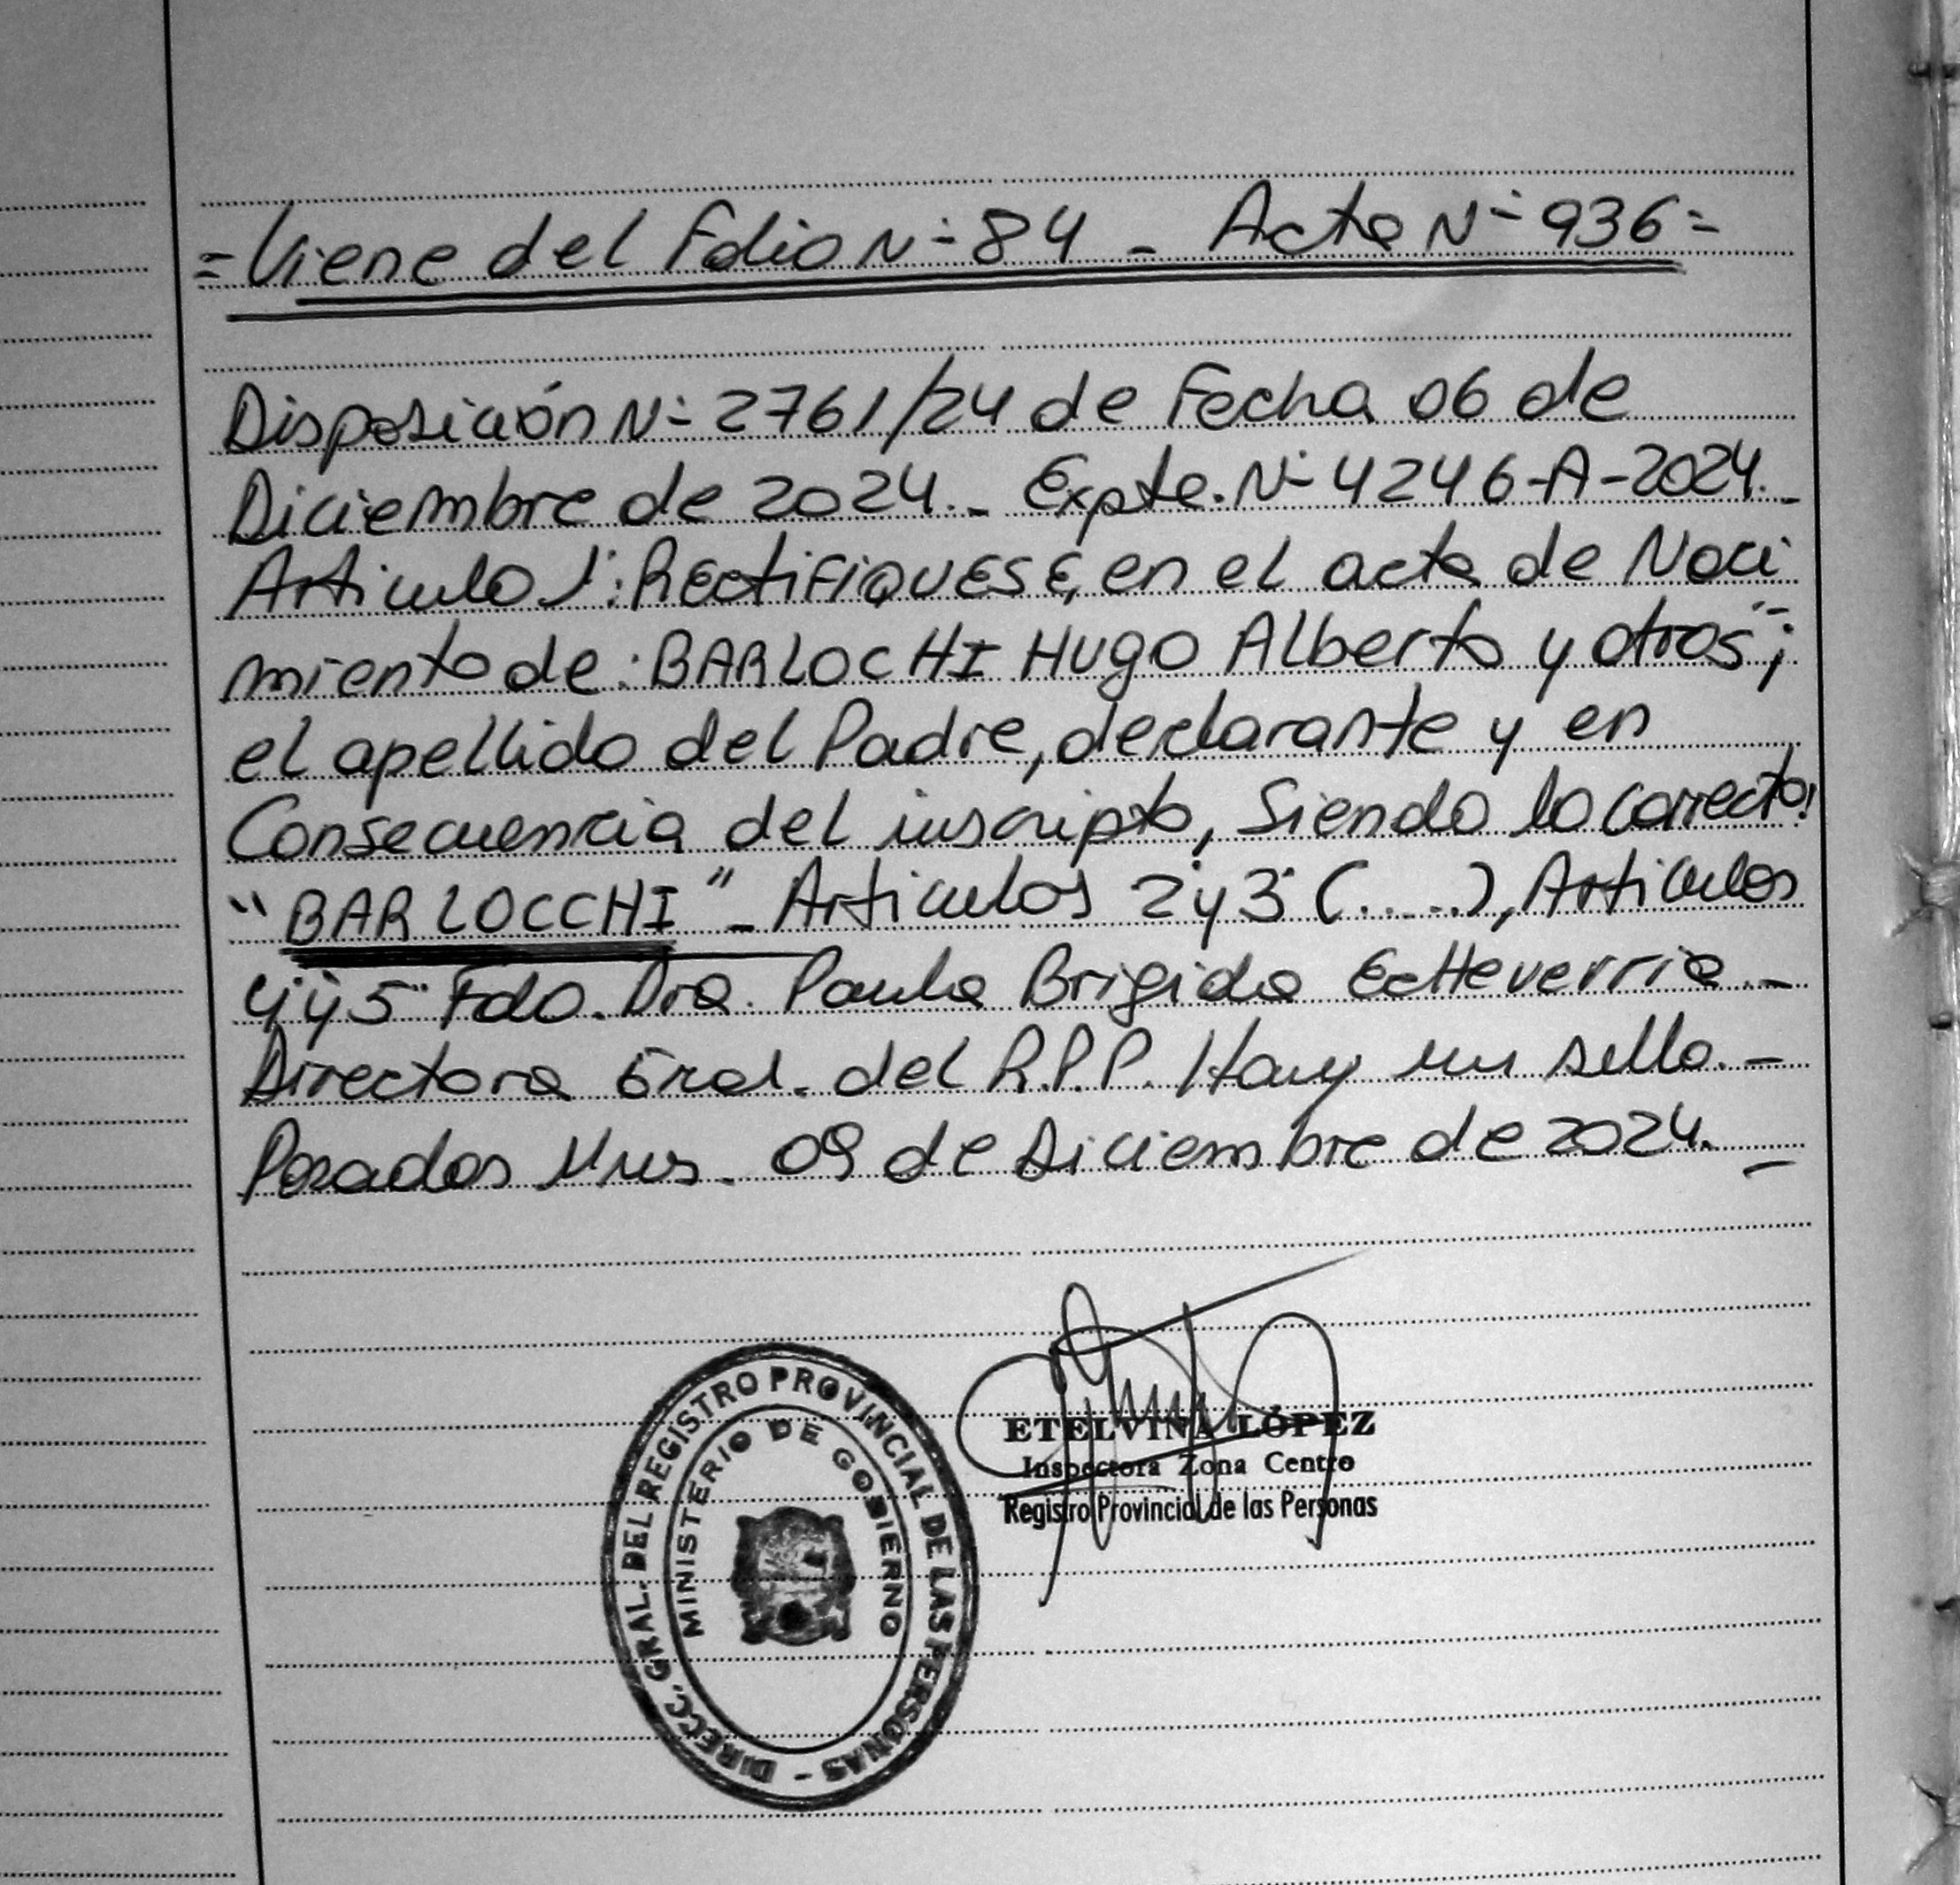 =Viene del Folio N° 84 - Acta N° 936=
Disposición N° 2761/24 de Fecha 06 de
Diciembre de 2024.- Expte. N° 4246-A-2024.-
Articulo 1°: RectiFIQUESE, en el acta de Naci
miento de: BARLOCHI Hugo Alberto y otros";
el apellido del Padre, declarante y en
Consecuencia del inscripto, Siendo lo correcto:
"BARLOCCHI" - Articulos 2° y 3° (.....), Articulos
4° y 5° Fdo. Dra. Paula Brigida Echeverria.-
Directora Gral. del R.P.P. Hay un sello.-
Posadas Mnes. 09 de Diciembre de 2024.-
DIRECC. GRAL. DEL REGISTRO PROVINCIAL DE LAS PERSONAS -
MINISTERIO DE GOBIERNO
ETELVINA LÓPEZ
Inspectora Zona Centro
Registro Provincial de las Personas